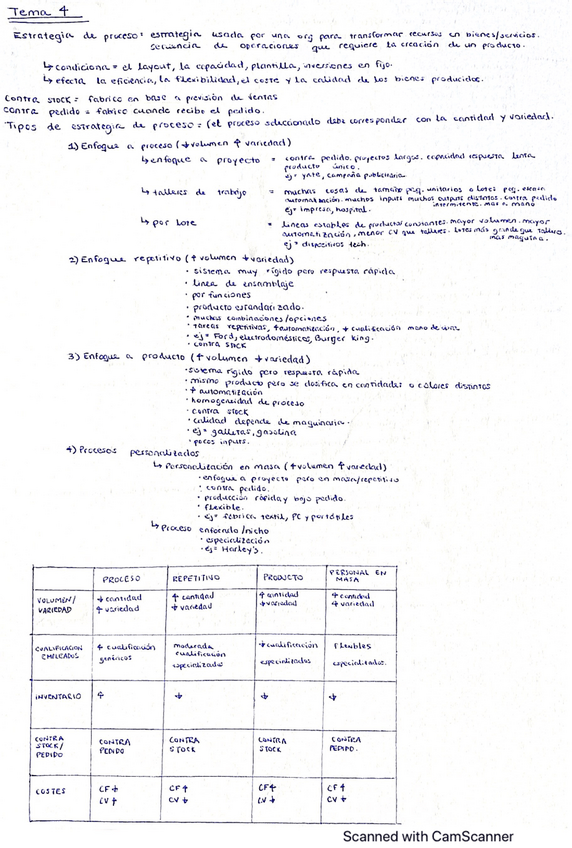 Tema 4
Estrategia de proceso = estrategia usada por una org para transformar recursos en bienes/servicios.
secuencia de operaciones que requiere la creación de un producto.
↳ condiciona = el layout, la capacidad, plantilla, inversiones en fijo.
↳ efecta la eficiencia, la flexibilidad, el coste y la calidad de los bienes producidos.
contra stock = fabrico en base a previsión de ventas
contra pedido = fabrico cuando recibo el pedido.
Tipos de estrategia de proceso = (el proceso seleccionado debe corresponder con la cantidad y variedad.
1) Enfoque a proceso (↓ volumen ↑ variedad)
↳ enfoque a proyecto = contra pedido. proyectos largos. capacidad respuesta lenta
producto único.
ej = yate, campaña publicitaria.
↳ talleres de trabajo = muchas cosas de tamaño peq. unitarios o lotes peq.
automatización. muchos inputs muchos outputs distintos. contra pedido
intermitente. mas m. mano
ej = impresa, hospital.
↳ por lote = lineas estables de productos constantes. mayor volumen. mayor
automatización, menor CV que talleres. lotes más grande que talleres.
más maquina.
ej = dispositivos tech.
2) Enfoque repetitivo (↑ volumen ↓ variedad)
· sistema muy rígido pero respuesta rápida
· linea de ensamblaje
· por funciones
· producto estandarizado.
· muchas combinaciones/opciones
· tareas repetitivas, ↑ automatización, ↓ cualificación mano de obra
· ej = Ford, electrodomésticos, Burger King.
· contra stock
3) Enfoque a producto (↑ volumen ↓ variedad)
· sistema rígido pero respuesta rápida
· mismo producto pero se dosifica en cantidades o colores distintos
· + automatización
· homogeneidad de proceso
· contra stock
· calidad depende de maquinaria.
· ej = galletas, gasolina
· pocos inputs.
4) Procesos personalizados
↳ Personalización en masa (↑ volumen ↑ variedad)
· enfoque a proyecto pero en masa/repetitivo
· contra pedido.
· producción rápida y bajo pedido.
· flexible.
· ej = fábrica textil, PC y portátiles
↳ Proceso enfocado/nicho
· especialización
· ej = Harley's.
PROCESO REPETITIVO PRODUCTO PERSONAL EN MASA
VOLUMEN/ VARIEDAD ↓ cantidad ↑ variedad ↑ cantidad ↓ variedad ↑ cantidad ↓ variedad ↑ cantidad ↑ variedad
CUALIFICACION EMPLEADOS ↑ cualificación genéricos moderada cualificación especializados ↓ cualificación especializados Flexibles especializados.
INVENTARIO ↑ ↓ ↓ ↓
CONTRA STOCK/ PEDIDO CONTRA PEDIDO CONTRA STOCK CONTRA STOCK CONTRA PEDIDO.
COSTES CF ↓ CV ↑ CF ↑ CV ↓ CF ↑ CV ↓ CF ↑ CV ↓
Scanned with CamScanner